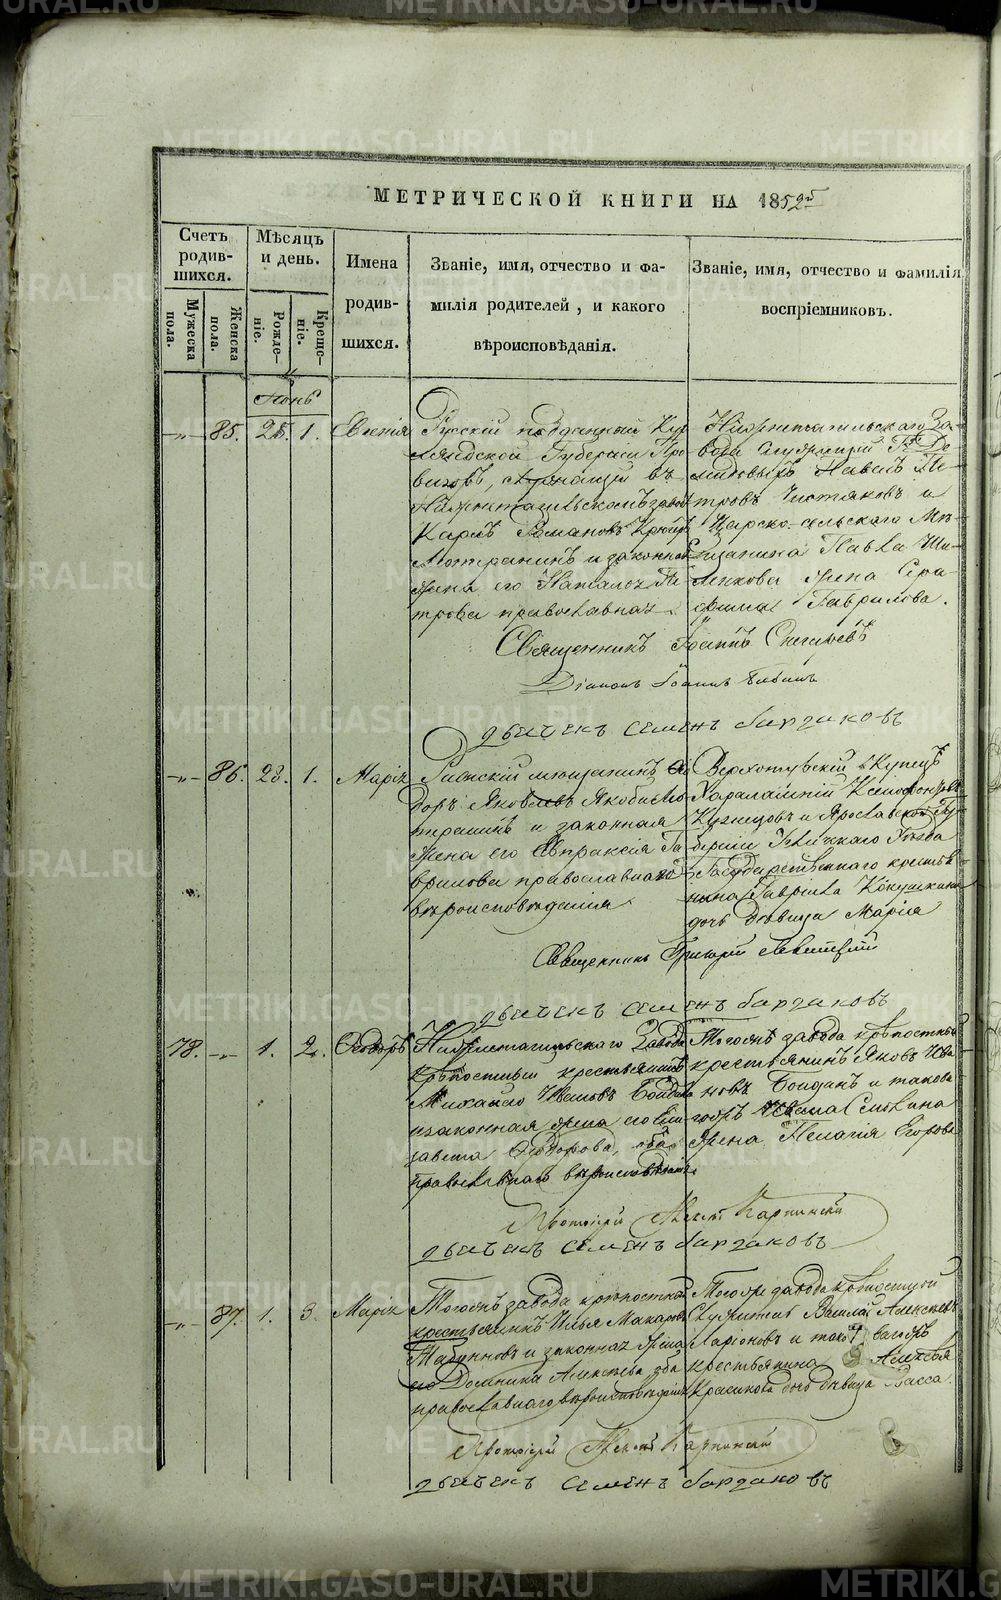 МЕТРИЧЕСКОЙ КНИГИ НА 1852й
Счетъ родив-шихся.
Мужеска пола.
Женска пола.
Мѣсяцъ и день.
Рожде-ніе.
Креще-ніе.
Имена родив-шихся.
Званіе, имя, отчество и фа-
милія родителей, и какого
вѣроисповѣданія.
Званіе, имя, отчество и фамилія
воспріемниковъ.
85. 25. 1. Евгенія
Русскій подданный Кур
ляндской Губерніи
въ
Нижнетагильскомъ заводѣ
Карлъ Романовъ
Лютеранинъ и законная
жена его Наталья Пе
трова православная
Нижнетагильскаго За-
вода служащій Гг. Де
мидовыхъ Павелъ Пе-
тровъ Чистяковъ и
Царско-сельскаго Мѣ-
щанина Павла
жена Сера-
фима Гаврилова.
Священникъ Іоаннъ
Діаконъ Іоаннъ
дьячекъ Семенъ Бардаковъ
86. 23. 1. Марія
мѣщанинъ
доръ Яковлевъ
и законная
жена его Евпраксія Га
врилова православнаго
вѣроисповѣданія
Верхотурскій купецъ
Харалампій Ксенофонтовъ
Кузнецовъ и Ярославской Гу
берніи Угличкаго Уѣзда
Государственнаго крестья
нина Гаврила Кокушкина
дочь дѣвица Марія
Священникъ Григорій Левитскій
дьячекъ Семенъ Бардаковъ
78. 1. 2. Ѳеодоръ
Нижнетагильскаго Завода
крѣпостный крестьянинъ
Михайло Ивановъ
и законная жена его Ели
завета Ѳеодорова, оба
православнаго вѣроисповѣданія
Тогожъ завода крѣпостный
крестьянинъ Яковъ Ива
новъ и такова
гожъ Ивана
жена Пелагія Егорова
Протоіерей Карпинскій
дьячекъ Семенъ Бардаковъ
87. 1. 3. Марія
Тогожъ завода крѣпостной
крестьянинъ Илья Макаровъ
и законная жена
его Домника Алексѣева оба
православнаго вѣроисповѣданія
Тогоже завода крѣпостный
служитель Василій Алексѣевъ
Ларіоновъ и
крестьянина Алексѣя
Красикова дочь дѣвица Васса.
Протоіерей Карпинскій
дьячекъ Семенъ Бардаковъ
METRIKI.GASO-URAL.RU